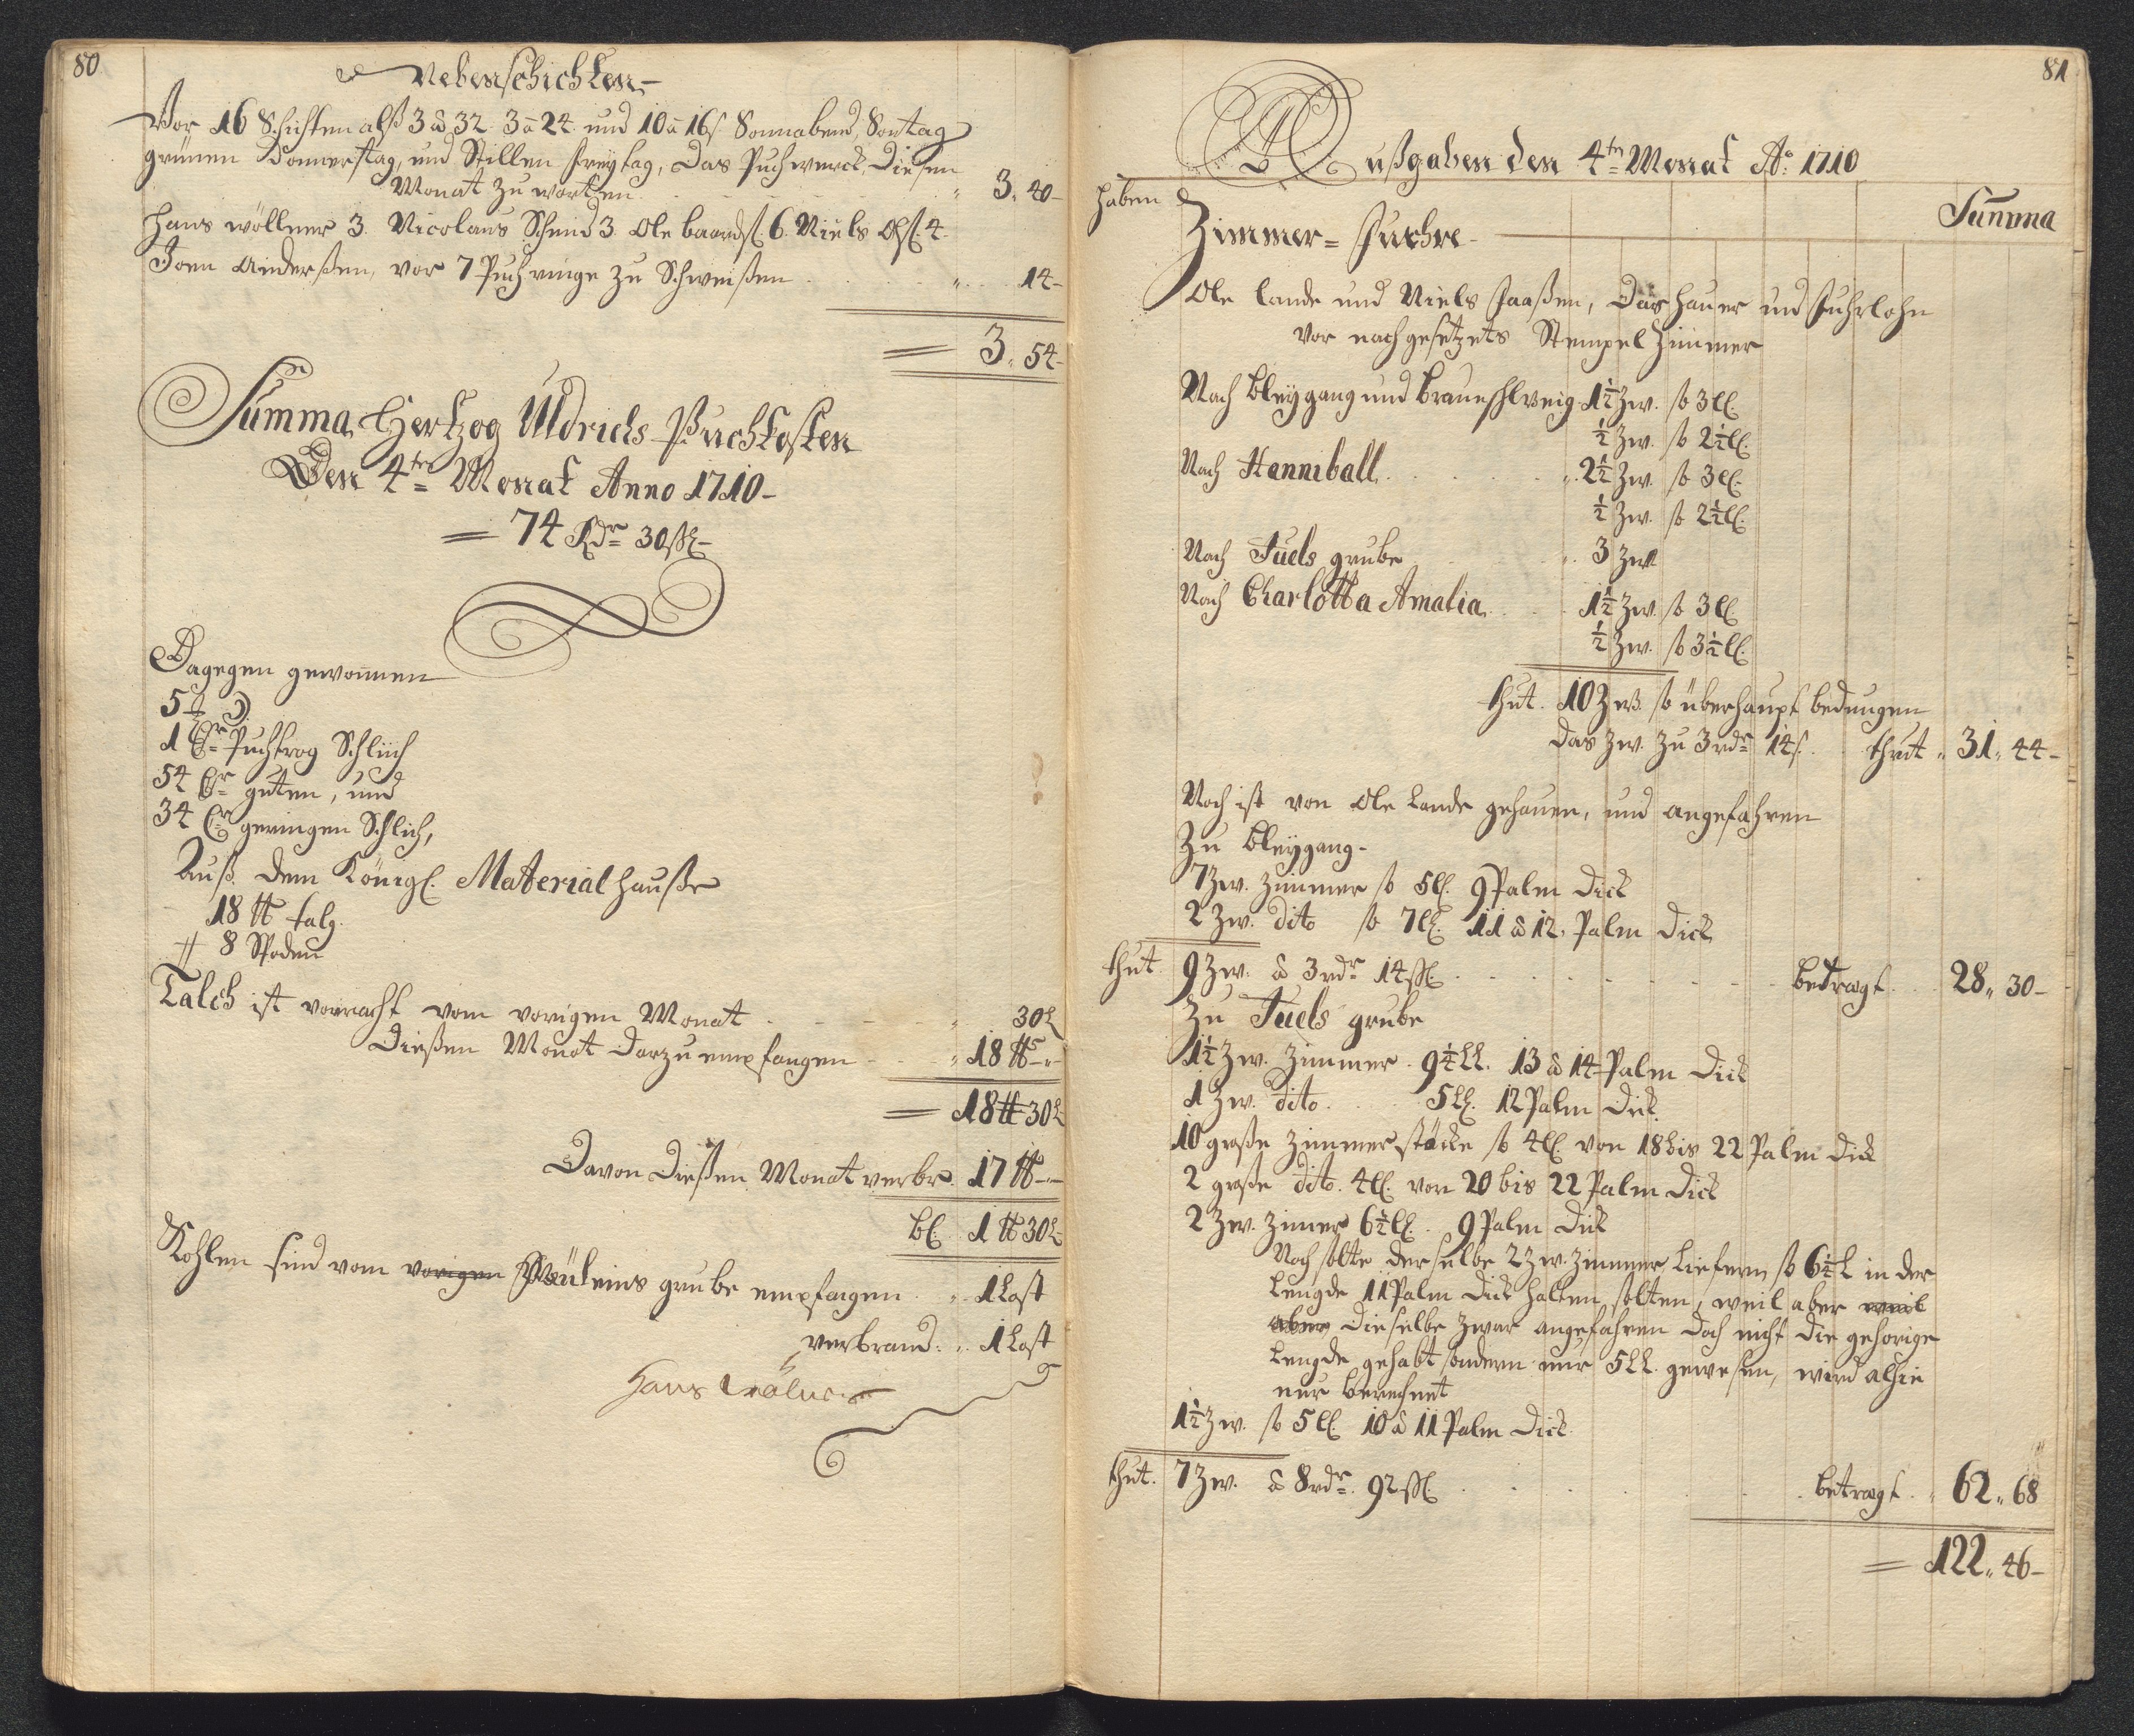 80
Nebenschichten
Vor 16 Schichten alß 3 â 32. 3 â 24. und 10 â 16 ß Sonnabend, Sontag
grünen Donnerstag, und Stillen Freytag, das Puchwerck, diesen
Monat zu warten " 3. 40 -
Hans wöllner 3. Nicolaus Schmid 3. Ole baardß. 6. Niels Olß. 4.
Joen Anderßen, vor 7 Puchringe zu Schweißen " 14 -
= 3. 54 -
Summa Hertzog Uldrichs Puchkosten
Den 4tn Monat Anno 1710 -
= 74 Rdr 30 ßl -
Dagegen gewonnen
1 Ctr Puchtrog Schlich
54 Ctr guten, und
34 Ctr geringen Schlich,
Auß dem Königl. Material hauße
18 ℔ talg.
8 Spaden
Talch ist vorracht vom vorigen Monat " 30 L
Dießen Monat darzu empfangen " 18 ℔ -"-
= 18 ℔ 30 L
Davon dießen Monat verbr. 17 ℔ -"-
bl. 1 ℔ 30 L
Kohlen sind vom vorigen grube empfangen " 1 Last
verbrand. " 1 Last
Hans Wölner
81
Außgaben den 4tn Monat Ao. 1710
haben
Summa
Zimmer = Fuehre -
Ole lande und Niels Jaaßen, das hauer und Fuhrlohn
vor nachgesetzets Stempel Zimmer
Nach bleygang und braunschweig 1½ Zw. so 3 ll.
½ Zw. so 2½ ll.
Nach Hanniball " 2½ Zw. so 3 ll.
½ Zw. so 2½ ll.
Nach Juels grube " 3 Zw
Nach Charlotta Amalia 1½ Zw. so 3 ll.
½ Zw. so 3½ ll.
thut. 10 Zw. so überhaupt bedungen
das Zw. zu 3 rdr 14 ß. thut " 31. 44 -
Noch ist von Ole Lande gehauen, und angefahren
Zu bleygang -
7 Zw. Zimmer so 5 ll. 9 Palm dick
2 Zw. dito so 7 ll. 11 â 12. Palm dick
thut. 9 Zw. â 3 rdr 14 ßl. betragt 28. 30 -
Zu Juels grube
1½ Zw. Zimmer. 9¼ ll. 13 â 14 Palm dick
1 Zw. dito. 5 ll. 12 Palm dick.
10 große Zimmerstöcke so 4 ll. von 18 bis 22 Palm dick
2 große dito. 4 ll. von 20 bis 22 Palm dick
2 Zw. Zimer 6½ ll. 9 Palm dick
Noch solte derselbe 2 Zw. Zimmer liefern so 6¼ l in der
Lengde 11 Palm dick halten solten, weil aber weil
aber dieselbe zwar angefahren doch nicht die gehorige
Lengde gehabt sondern nur 5 ll. gewesen, wird alhie
nur berechnet
1½ Zw. so 5 ll. 10 â 11 Palm dick
thut. 7 Zw. â 8 rdr 92 ßl. betragt " 62. 68
= 122. 46 -